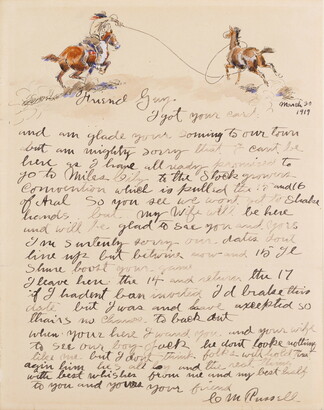 March 20
1919
Friend Guy
I got your card
and am glade your coming to our town
but am mighty sorry that I cant be
here as I have all ready promised to
go to Miles City to the Stock growers
Convention which is pulled the 15 and 16
of So you see we wont get to Shake
hands but my Wife will be here
and will be glad to see you and yors
I'm surtenly sorry our dates dont
line up but betwine now and 15 Il
Shure boost your
I leave here the 14 and return the 17
if I hadent ben invited I'd brake this
date but I was and have axcepted so
thairs no chance to back out
when your here I want you and your wife
to see our boy he dont looke nothing
like me but I dont think folks will hold
again him hes all
with best whishes from me and my best half
to you and yours your friend
C M Russell